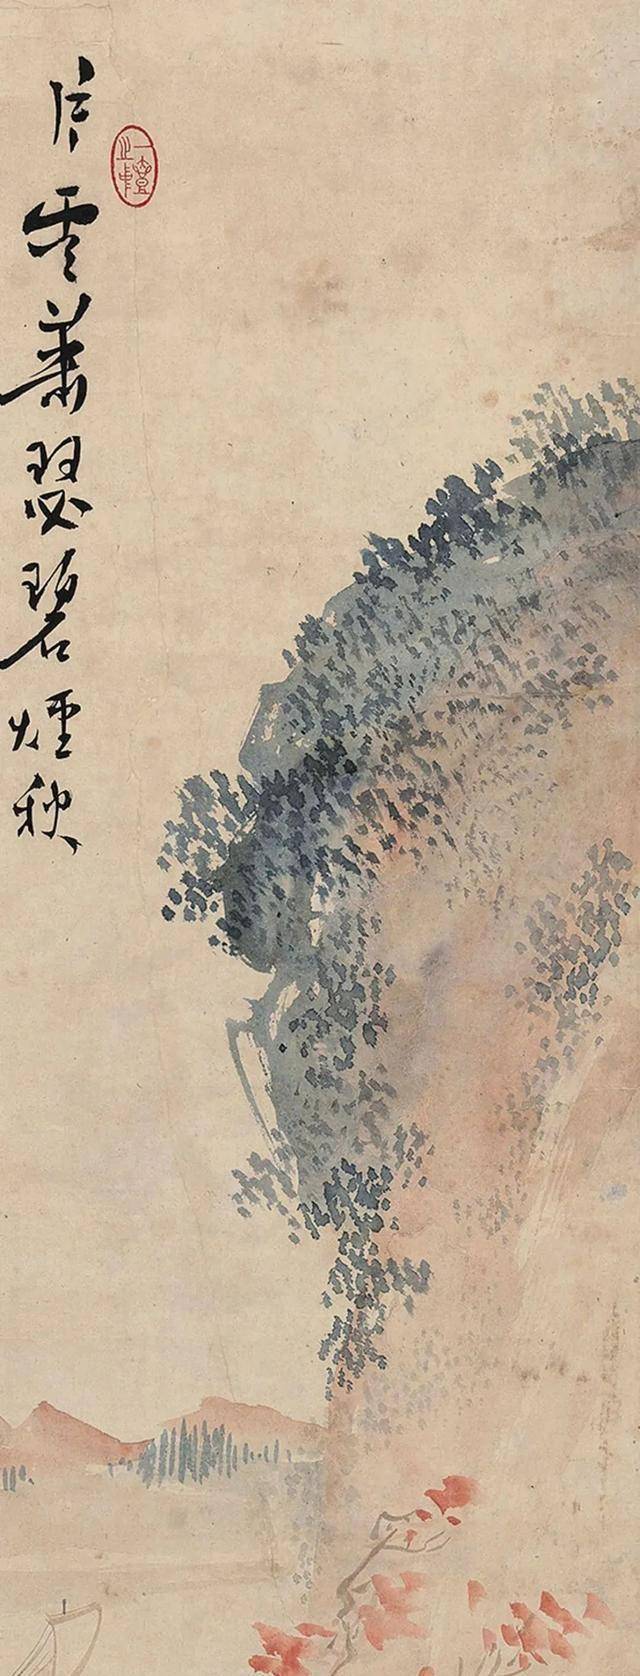 片雲蕭瑟碧煙秋